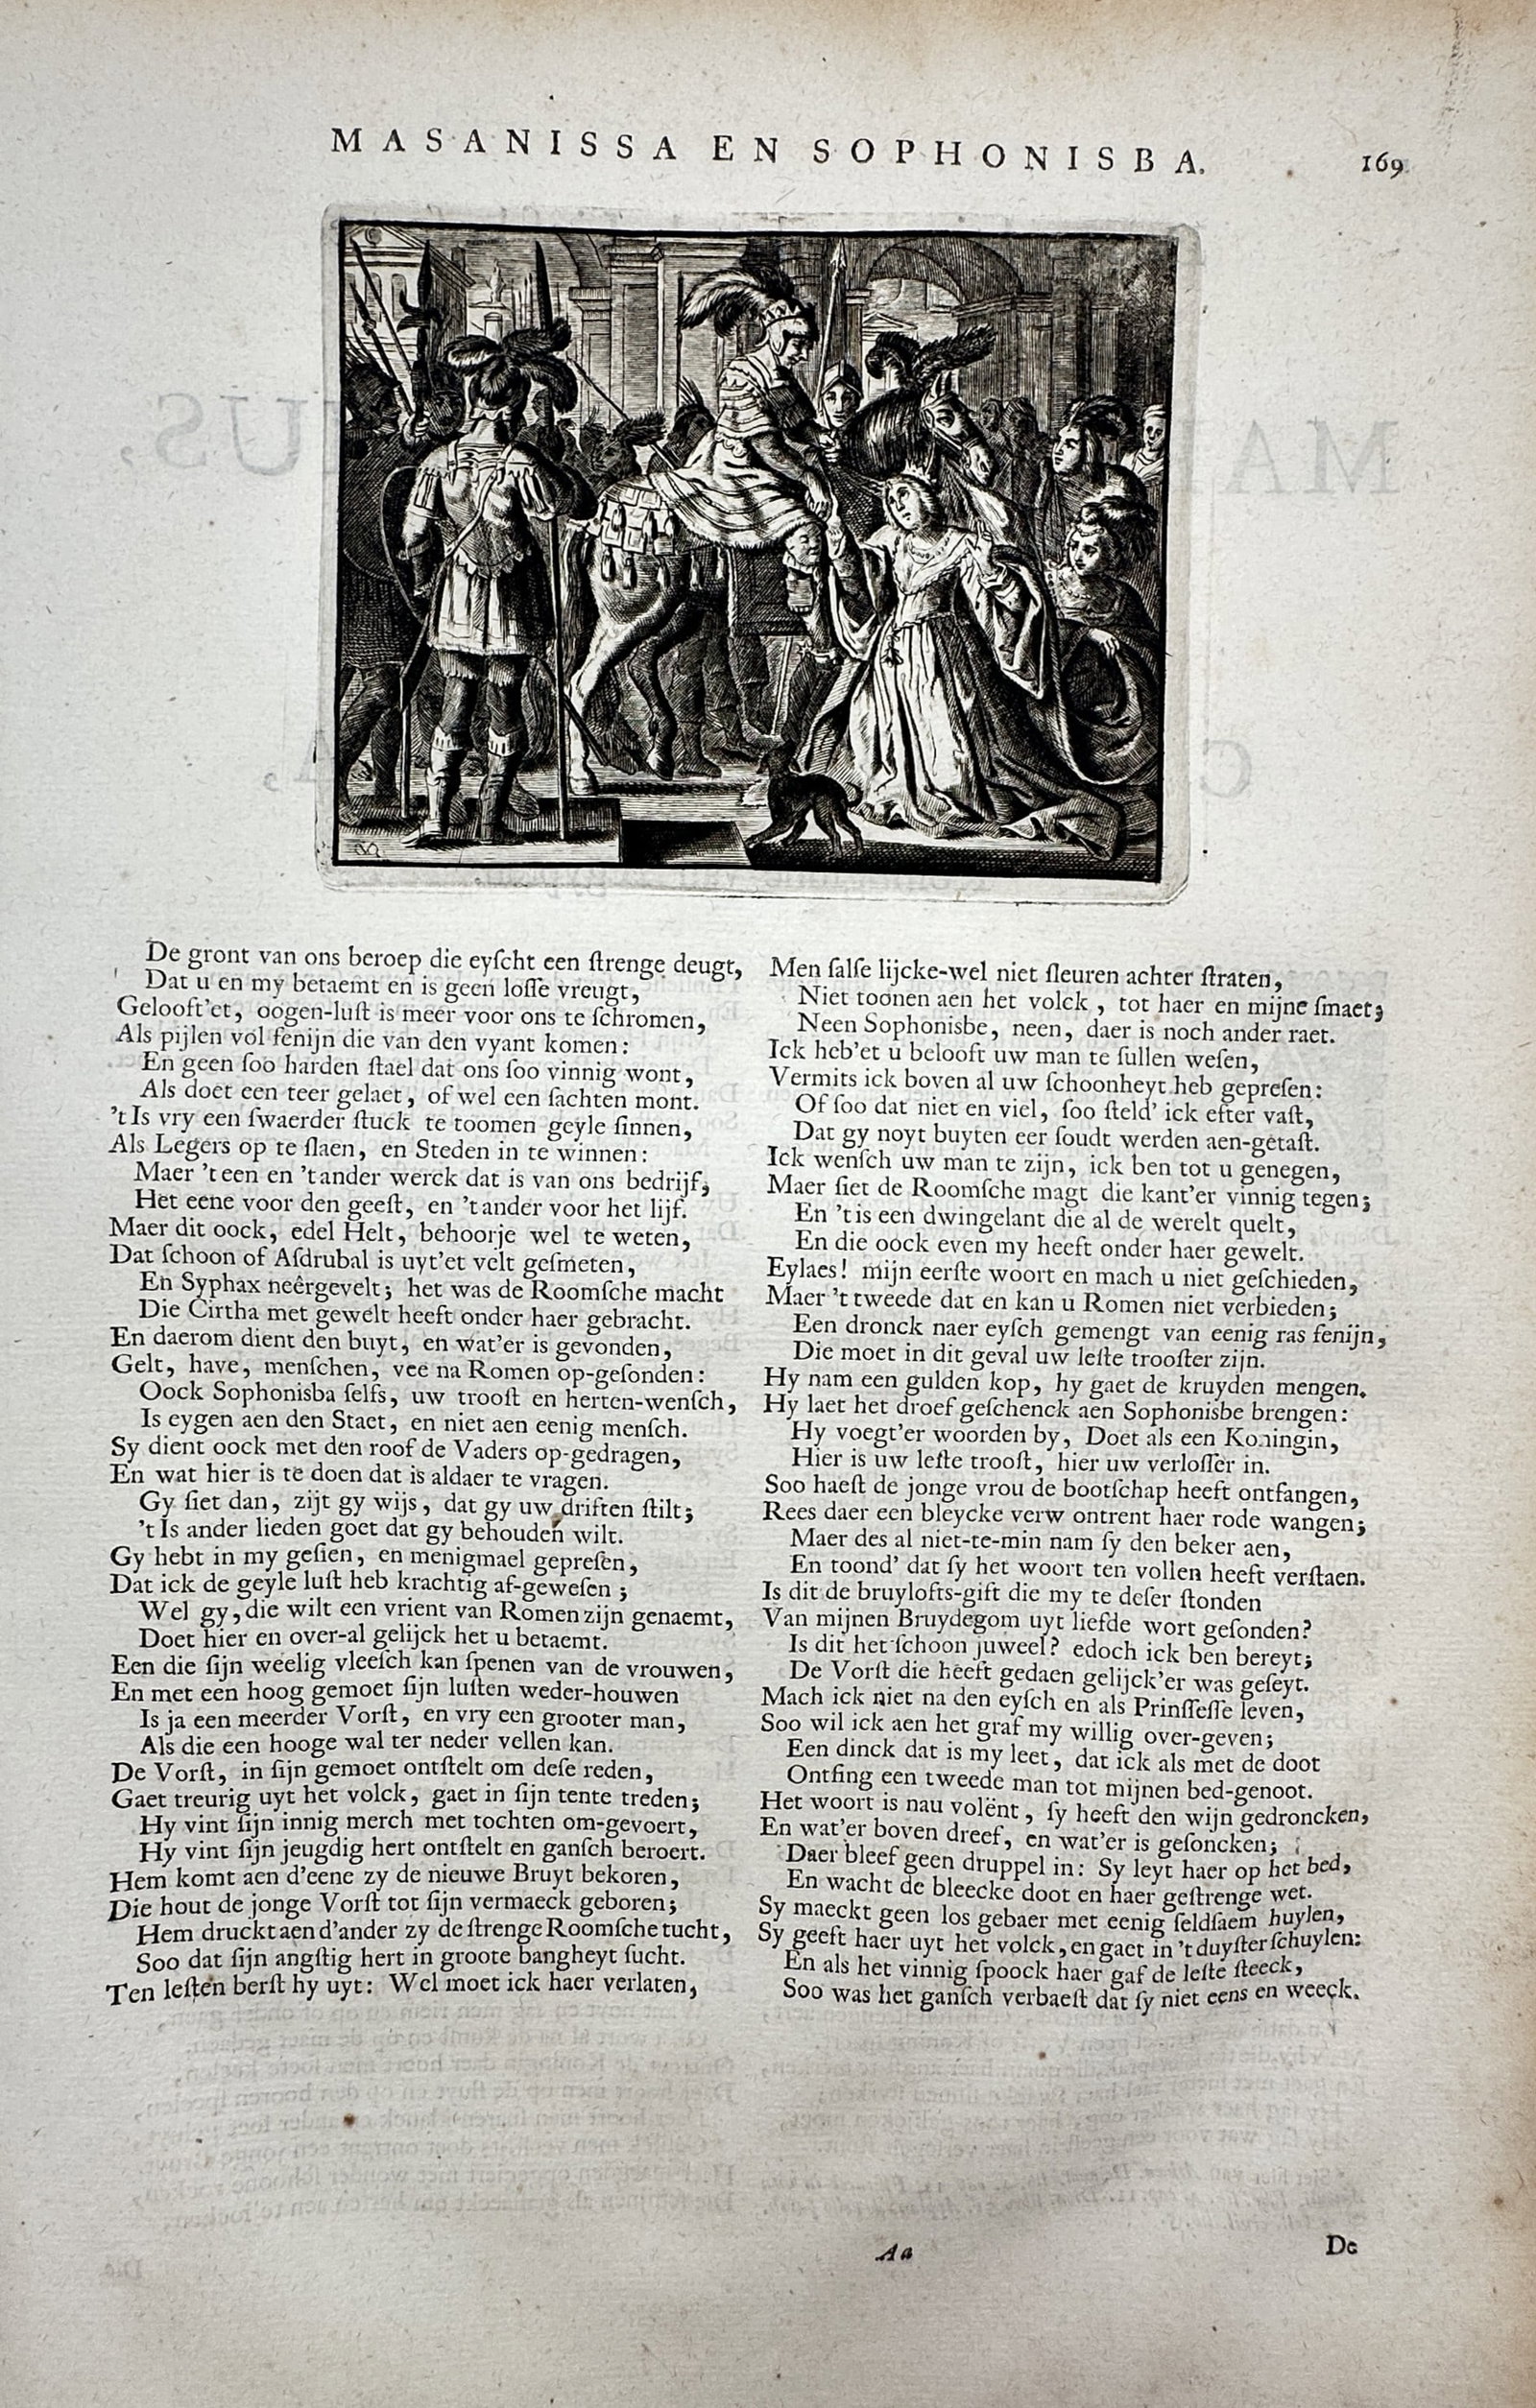 MASANISSA EN SOPHONISBA.
169
De gront van ons beroep die eyſcht een ſtrenge deugt,
Dat u en my betaemt en is geen loſſe vreugt,
Gelooft'et, oogen-luſt is meer voor ons te ſchromen,
Als pijlen vol fenijn die van den vyant komen:
En geen ſoo harden ſtael dat ons ſoo vinnig wont,
Als doet een teer gelaet, of wel een ſachten mont.
't Is vry een ſwaerder ſtuck te toomen geyle ſinnen,
Als Legers op te ſlaen, en Steden in te winnen:
Maer 't een en 't ander werck dat is van ons bedrijf,
Het eene voor den geeſt, en 't ander voor het lijf.
Maer dit oock, edel Helt, behoorje wel te weten,
Dat ſchoon of Aſdrubal is uyt'et velt geſmeten,
En Syphax neêrgevelt; het was de Roomſche macht
Die Cirtha met gewelt heeft onder haer gebracht.
En daerom dient den buyt, en wat'er is gevonden,
Gelt, have, menſchen, vee na Romen op-geſonden:
Oock Sophonisba ſelfs, uw trooſt en herten-wenſch,
Is eygen aen den Staet, en niet aen eenig menſch.
Sy dient oock met den roof de Vaders op-gedragen,
En wat hier is te doen dat is aldaer te vragen.
Gy ſiet dan, zijt gy wijs, dat gy uw driften ſtilt;
't Is ander lieden goet dat gy behouden wilt.
Gy hebt in my geſien, en menigmael gepreſen,
Dat ick de geyle luſt heb krachtig af-geweſen;
Wel gy, die wilt een vrient van Romen zijn genaemt,
Doet hier en over-al gelijck het u betaemt.
Een die ſijn weelig vleeſch kan ſpenen van de vrouwen,
En met een hoog gemoet ſijn luſten weder-houwen
Is ja een meerder Vorſt, en vry een grooter man,
Als die een hooge wal ter neder vellen kan.
De Vorſt, in ſijn gemoet ontſtelt om deſe reden,
Gaet treurig uyt het volck, gaet in ſijn tente treden;
Hy vint ſijn innig merch met tochten om-gevoert,
Hy vint ſijn jeugdig hert ontſtelt en ganſch beroert.
Hem komt aen d'eene zy de nieuwe Bruyt bekoren,
Die hout de jonge Vorſt tot ſijn vermaeck geboren;
Hem druckt aen d'ander zy de ſtrenge Roomſche tucht,
Soo dat ſijn angſtig hert in groote bangheyt ſucht.
Ten leſten berſt hy uyt: Wel moet ick haer verlaten,
Men ſalſe lijcke-wel niet ſleuren achter ſtraten,
Niet toonen aen het volck, tot haer en mijne ſmaet;
Neen Sophonisbe, neen, daer is noch ander raet.
Ick heb'et u belooft uw man te ſullen weſen,
Vermits ick boven al uw ſchoonheyt heb gepreſen:
Of ſoo dat niet en viel, ſoo ſteld' ick efter vaſt,
Dat gy noyt buyten eer ſoudt werden aen-getaſt.
Ick wenſch uw man te zijn, ick ben tot u genegen,
Maer ſiet de Roomſche magt die kant'er vinnig tegen;
En 't is een dwingelant die al de werelt quelt,
En die oock even my heeft onder haer gewelt.
Eylaes! mijn eerſte woort en mach u niet geſchieden,
Maer 't tweede dat en kan u Romen niet verbieden;
Een dronck naer eyſch gemengt van eenig ras fenijn,
Die moet in dit geval uw leſte trooſter zijn.
Hy nam een gulden kop, hy gaet de kruyden mengen.
Hy laet het droef geſchenck aen Sophonisbe brengen:
Hy voegt'er woorden by, Doet als een Koningin,
Hier is uw leſte trooſt, hier uw verloſſer in.
Soo haeſt de jonge vrou de bootſchap heeft ontfangen,
Rees daer een bleycke verw ontrent haer rode wangen;
Maer des al niet-te-min nam ſy den beker aen,
En toond' dat ſy het woort ten vollen heeft verſtaen.
Is dit de bruylofts-gift die my te deſer ſtonden
Van mijnen Bruydegom uyt liefde wort geſonden?
Is dit het ſchoon juweel? edoch ick ben bereyt;
De Vorſt die heeft gedaen gelijck'er was geſeyt.
Mach ick niet na den eyſch en als Prinſſeſſe leven,
Soo wil ick aen het graf my willig over-geven;
Een dinck dat is my leet, dat ick als met de doot
Ontfing een tweede man tot mijnen bed-genoot.
Het woort is nau volënt, ſy heeft den wijn gedroncken,
En wat'er boven dreef, en wat'er is geſoncken;
Daer bleef geen druppel in: Sy leyt haer op het bed,
En wacht de bleecke doot en haer geſtrenge wet.
Sy maeckt geen los gebaer met eenig ſeldſaem huylen,
Sy geeft haer uyt het volck, en gaet in 't duyſter ſchuylen:
En als het vinnig ſpoock haer gaf de leſte ſteeck,
Soo was het ganſch verbaeſt dat ſy niet eens en weeck.
Aa
De